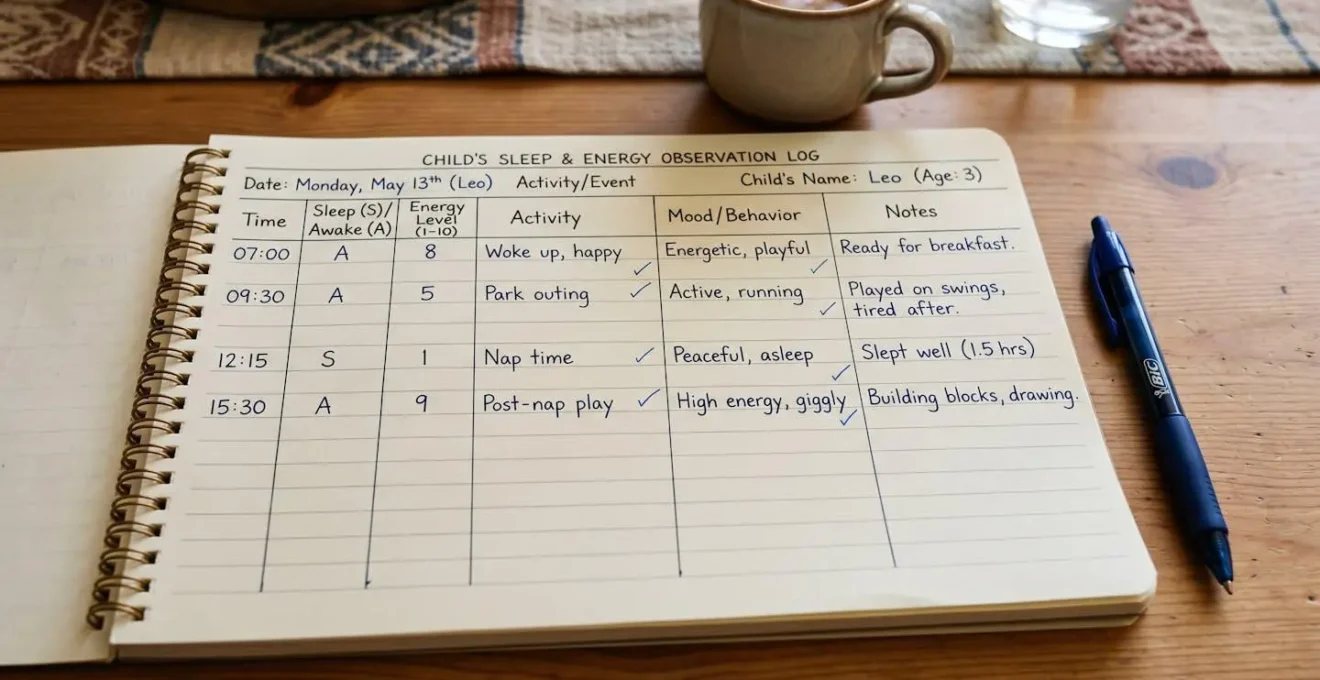 CHILD'S SLEEP & ENERGY OBSERVATION LOG
Date: Monday, May 13th (Leo) Activity/Event Child's Name: Leo (Age: 3)
Time Sleep (S)/ Awake (A) Energy Level (1-10) Activity Mood/Behavior Notes
07:00 A 8 Woke up, happy ✓ Energetic, playful ✓ Ready for breakfast.
09:30 A 5 Park outing ✓ Active, running ✓ Played on swings,
tired after.
12:15 S 1 Nap time ✓ Peaceful, asleep ✓ Slept well (1.5 hrs)
15:30 A 9 Post-nap play ✓ High energy, giggly ✓ Building blocks, drawing.
BIC